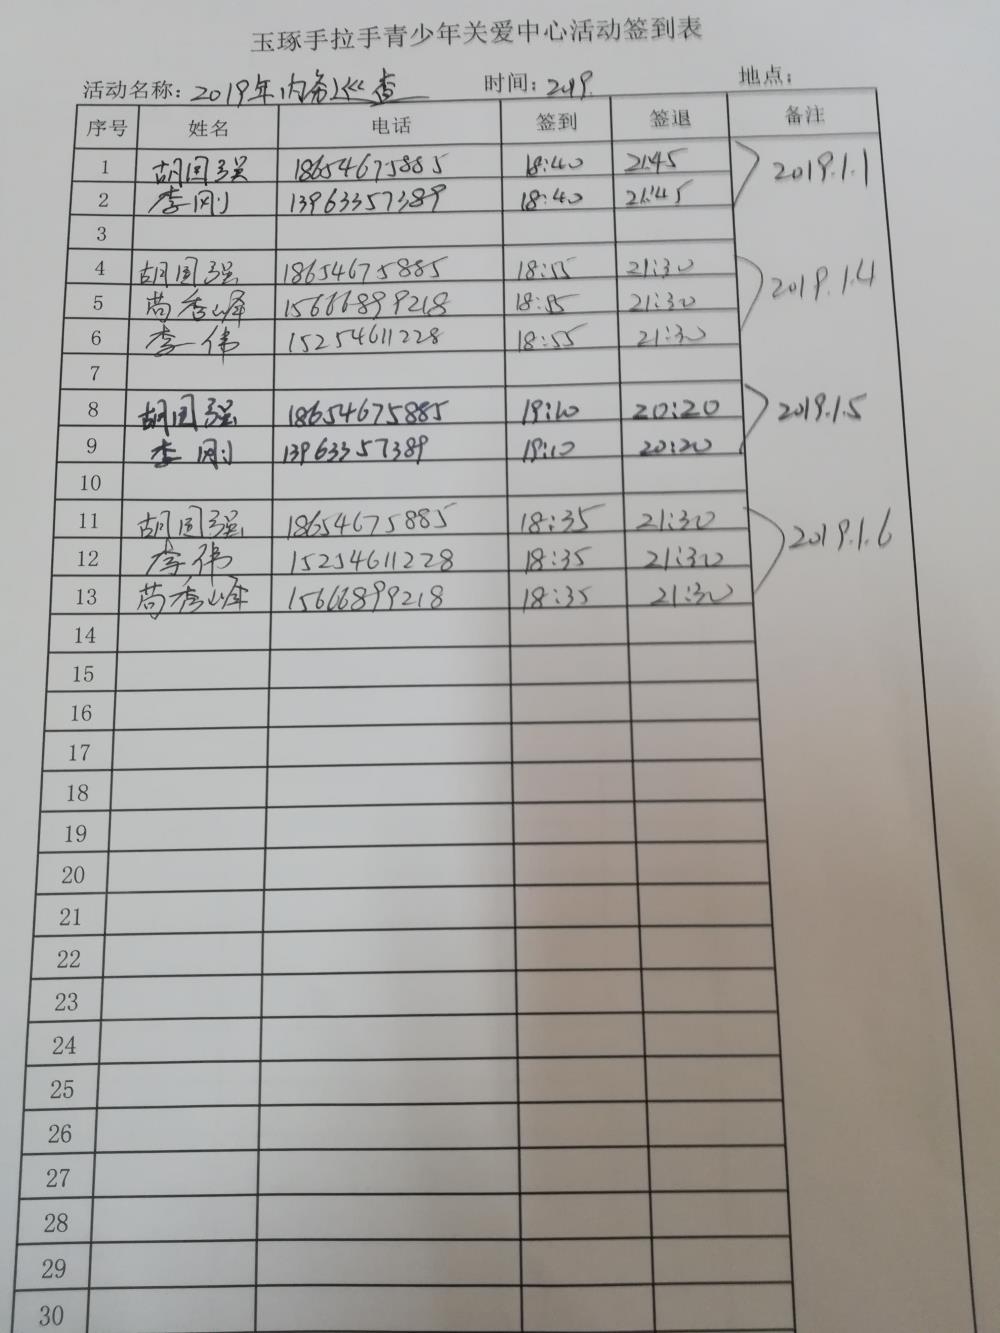 玉琢手拉手青少年关爱中心活动签到表
活动名称: 2019年内务巡查 时间: 2019. 地点:
序号 姓名 电话 签到 签退 备注
1 胡国强 18654675885 18:40 21:45 2019.1.1
2 李刚 13963357389 18:40 21:45
3
4 胡国强 18654675885 18:55 21:30 2019.1.4
5 秀峰 15666899218 18:55 21:30
6 李伟 15254611228 18:55 21:30
7
8 胡国强 18654675885 19:10 20:20 2019.1.5
9 李刚 13963357389 19:10 20:20
10
11 胡国强 18654675885 18:35 21:30 2019.1.6
12 李伟 15254611228 18:35 21:30
13 秀峰 15666899218 18:35 21:30
14
15
16
17
18
19
20
21
22
23
24
25
26
27
28
29
30